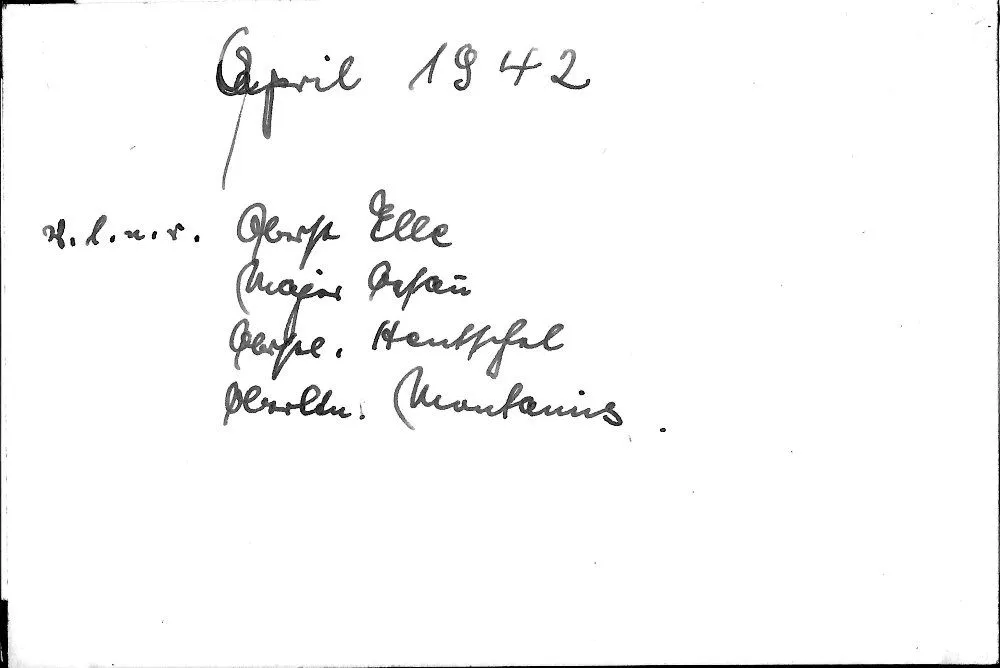 April 1942
v. l. n. r. Oberst Elle
Major
Oberstl. Hentschel
Oberltn. Montanus.